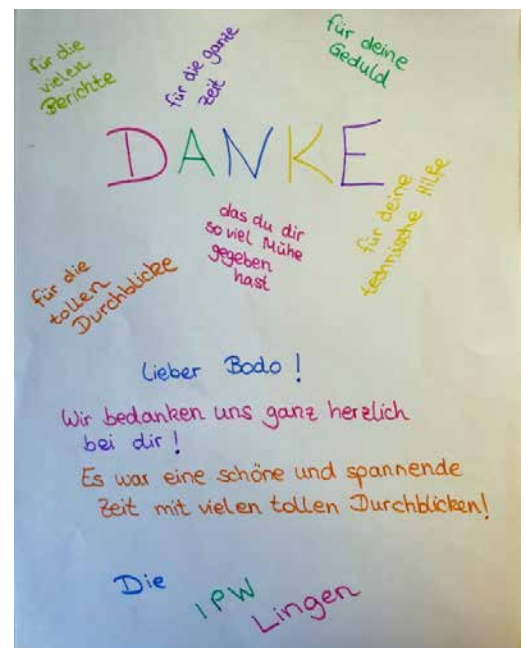 für die
vielen
Berichte
für die ganze
Zeit
für deine
Geduld
DANKE
für die
tollen
Durchblicke
das du dir
so viel Mühe
gegeben
hast
für deine
technische Hilfe
Lieber Bodo!
Wir bedanken uns ganz herzlich
bei dir!
Es war eine schöne und spannende
Zeit mit vielen tollen Durchblicken!
Die
IPW
Lingen